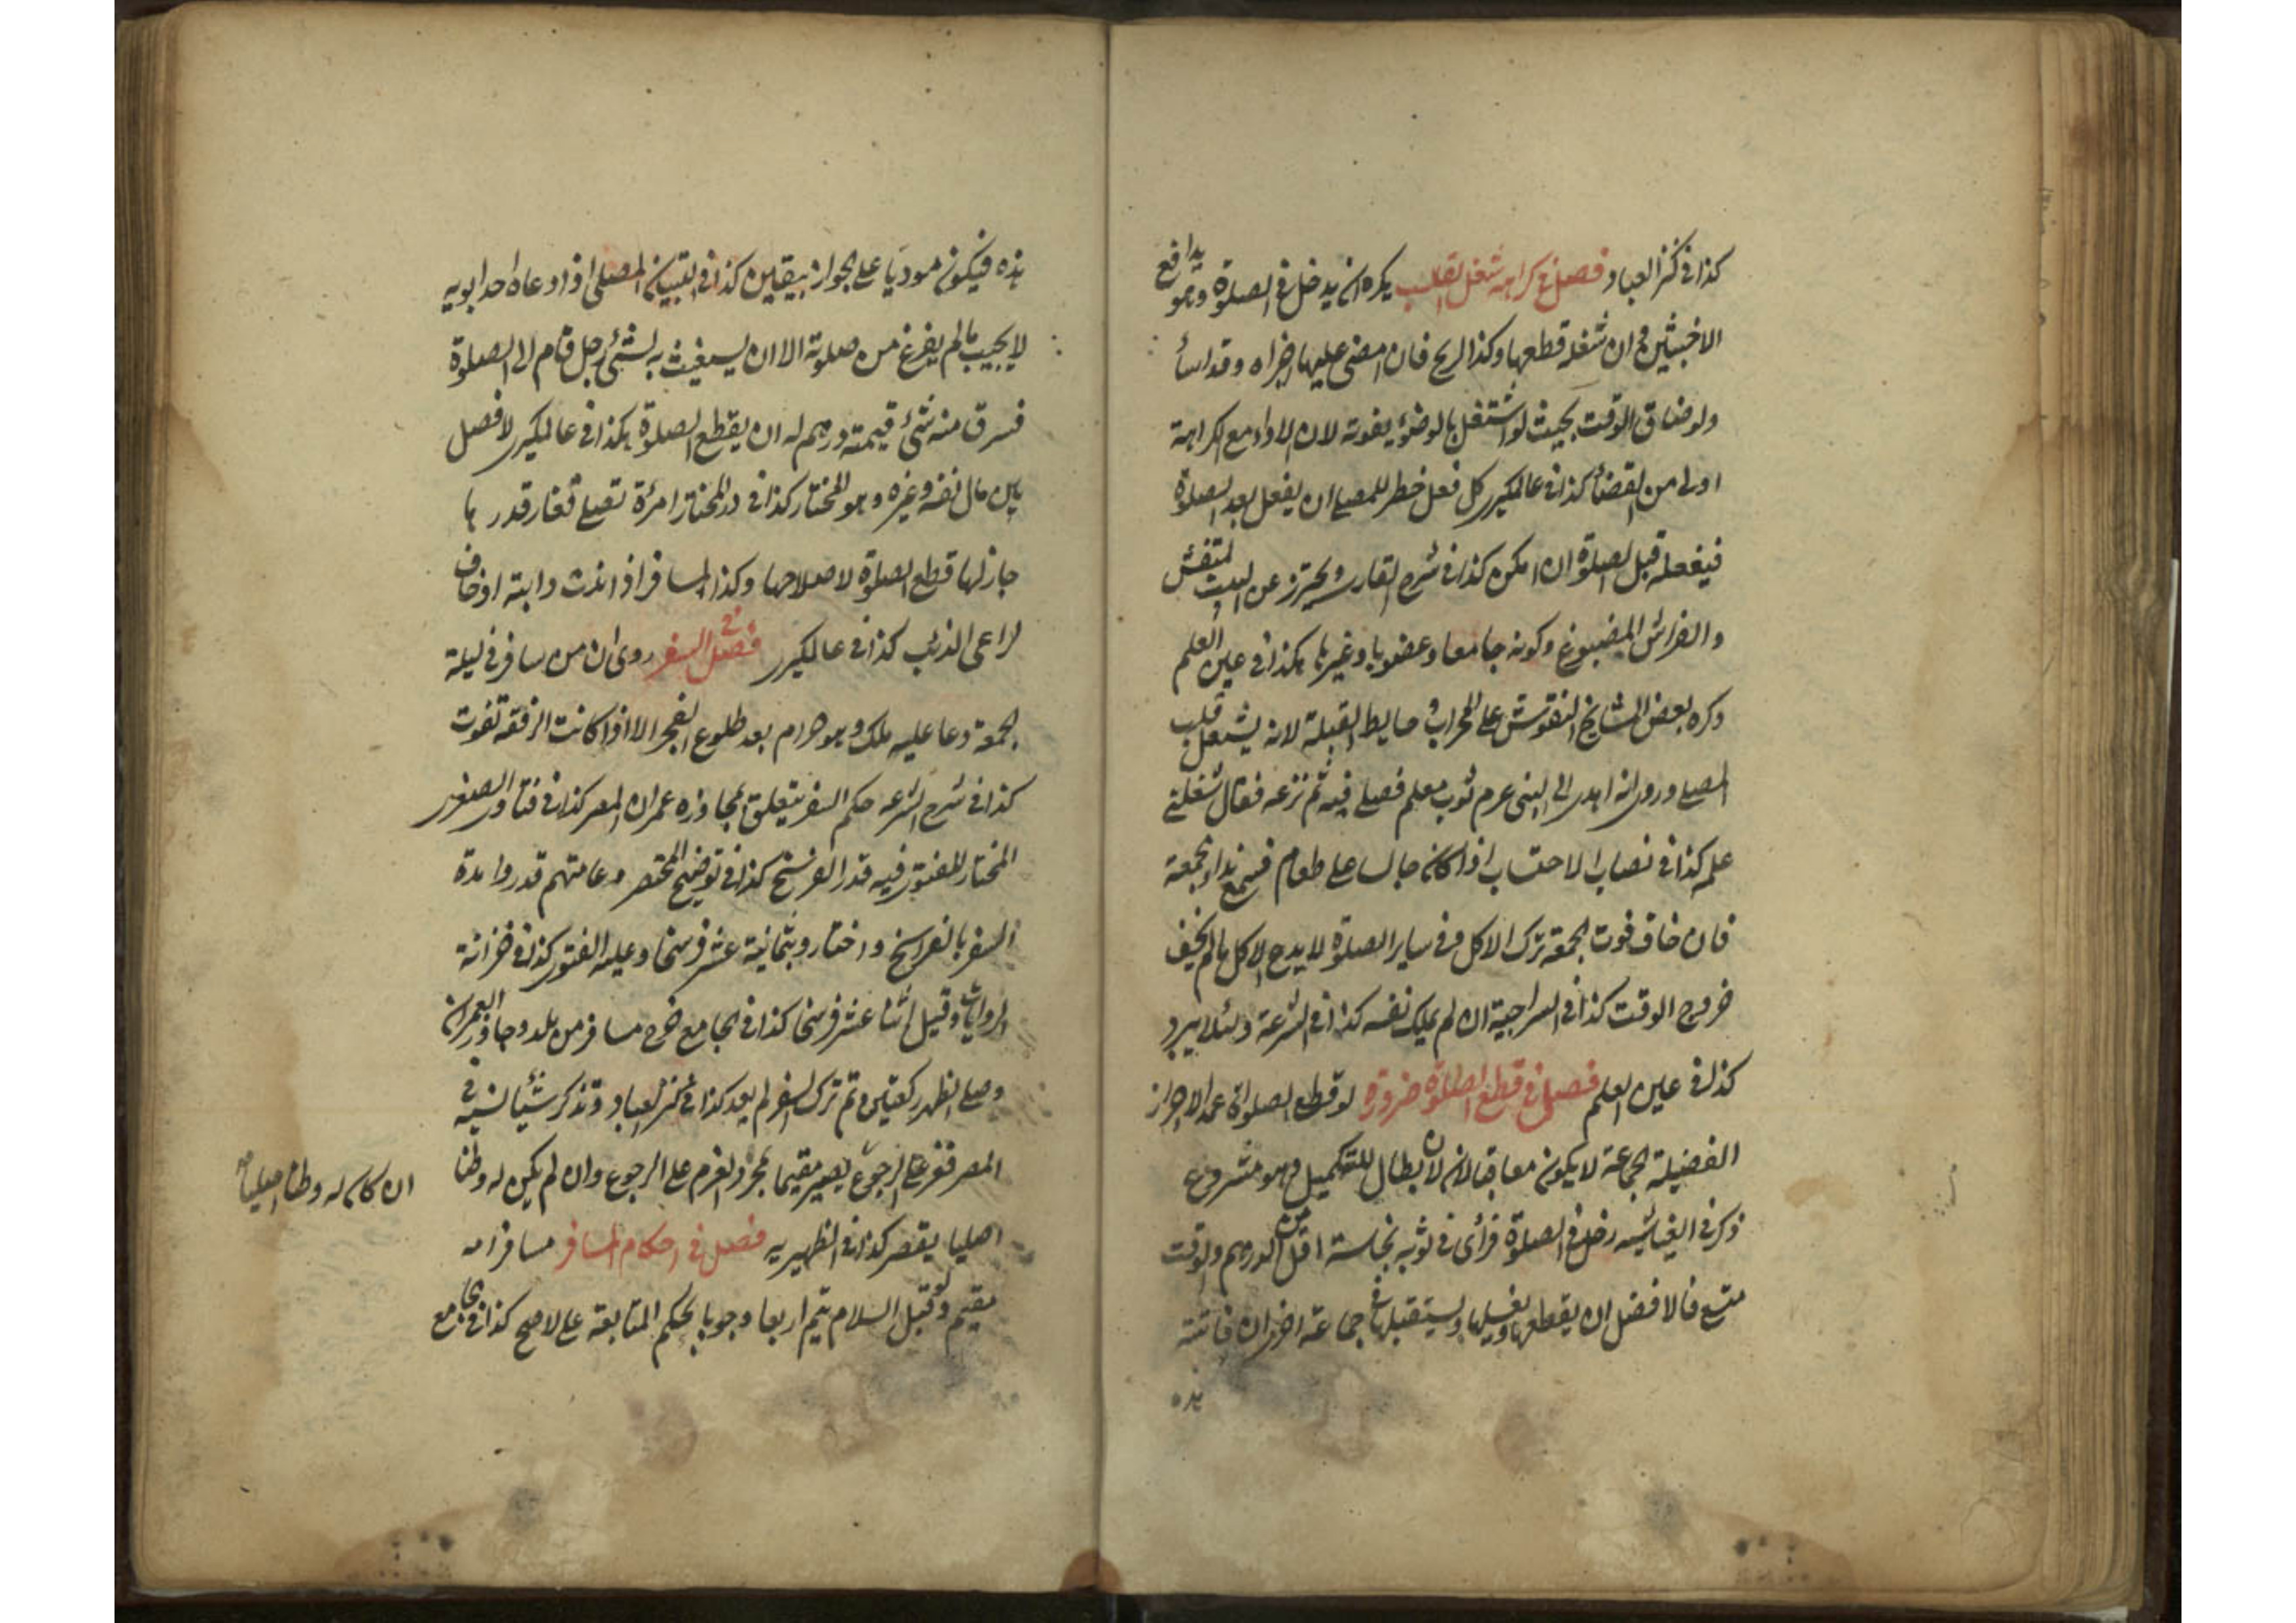 كذا فی كنز العباد فصل فی كراهة شغل القلب يكره ان يدخل فی الصلوة وهو يدافع
الاخبثين وان شغله قطعها وكذا الريح فان مضى عليها اجزاه وقد اساء
ولو ضاق الوقت بحيث لو اشتغل بالوضوء يفوته لان الاداء مع الكراهة
اولى من القضاء كذا فی عالمكيری كل فعل خطر للمصلی ان يفعل بعد الصلوة
فيفعله قبل الصلوة ان امكن كذا فی شرح القاری ويحترز عن البيت المنقش
والفراش المصبوغ وكونه جامعا وغيرها هكذا فی عين العلم
وكره بعض المشايخ النقوش على المحراب و حايط القبلة لانه يشغل قلب
المصلی وروی انه اهدی الی النبی عرم ثوب معلم فصلی فيه ثم نزعه فقال شغلنی
علمه كذا فی نصاب الاحتساب اذا كان جالسا على طعام فسمع نداء الجمعة
فان خاف فوت الجمعة ترك الاكل وفی ساير الصلوة لا يدع الاكل مالم يخف
خروج الوقت كذا فی السراجية ان لم يملك نفسه كذا فی الشرعة ولئلا يبرد
كذا فی عين العلم فصل فی قطع الصلوة ضرورة لو قطع الصلوة عمدا لاحراز
الفضيلة الجماعة لا يكون معاقبا لانه لان الابطال للتكميل وهو مشروع
ذكر فی الغياثيه رجل فی الصلوة فرأى فی ثوبه نجاسة اقل من الدرهم والوقت
متسع فالافضل ان يقطعها ويغسلها ويستقبلها فی جماعة اخرى ان فاتته
هذه
هذه فيكون موديا على الجواز بيقين كذا فی التبيين المصلی اذا دعاه احد ابويه
لا يجيب مالم يفرغ من صلوته الا ان يستغيث به لشئ رجل قام الی الصلوة
فسرق منه شئ قيمته درهم له ان يقطع الصلوة هكذا فی عالمكيری لا فصل
بين مال نفسه وغيره وهو المختار كذا فی در المختار امرأة تصلی فغار قدرها
جاز لها قطع الصلوة لاصلاحها وكذا المسافر اذا ندت دابته او خاف
لراعی الذئب كذا فی عالمكيری فصل فی السفر روی ان من سافر فی ليلة
الجمعة دعا عليه ملك وهو حرام بعد طلوع الفجر الا اذا كانت الرفقة تفوت
كذا فی شرح الشرعه حكم السفر يتعلق بمجاوزه عمران المصر كذا فی فتاوی الصغری
المختار للفتوى فيه قدر الفرسخ كذا فی توضيح المختصر وعامتهم قدروا مدة
السفر بالفراسخ واختاروا ثمانية عشر فرسخا وعليه الفتوى كذا فی خزانة
الروايات وقيل اثنا عشر فرسخا كذا فی الجامع خرج مسافر من بلده وجاوز العمران
وصلى الظهر ركعتين ثم ترك السفر لم يعد كذا فی كنز العباد وتذكر شيئا نسيه فی
المصر فعزم على الرجوع يصير مقيما بمجرد العزم على الرجوع وان لم يكن له وطنا
ان كان له وطنا اصليا
اصليا يقصر كذا فی الظهيريه فصل فی احكام المسافر مسافر امه
مقيم وقبل السلام يتم اربعا وجوبا بحكم المتابعة على الاصح كذا فی جامع